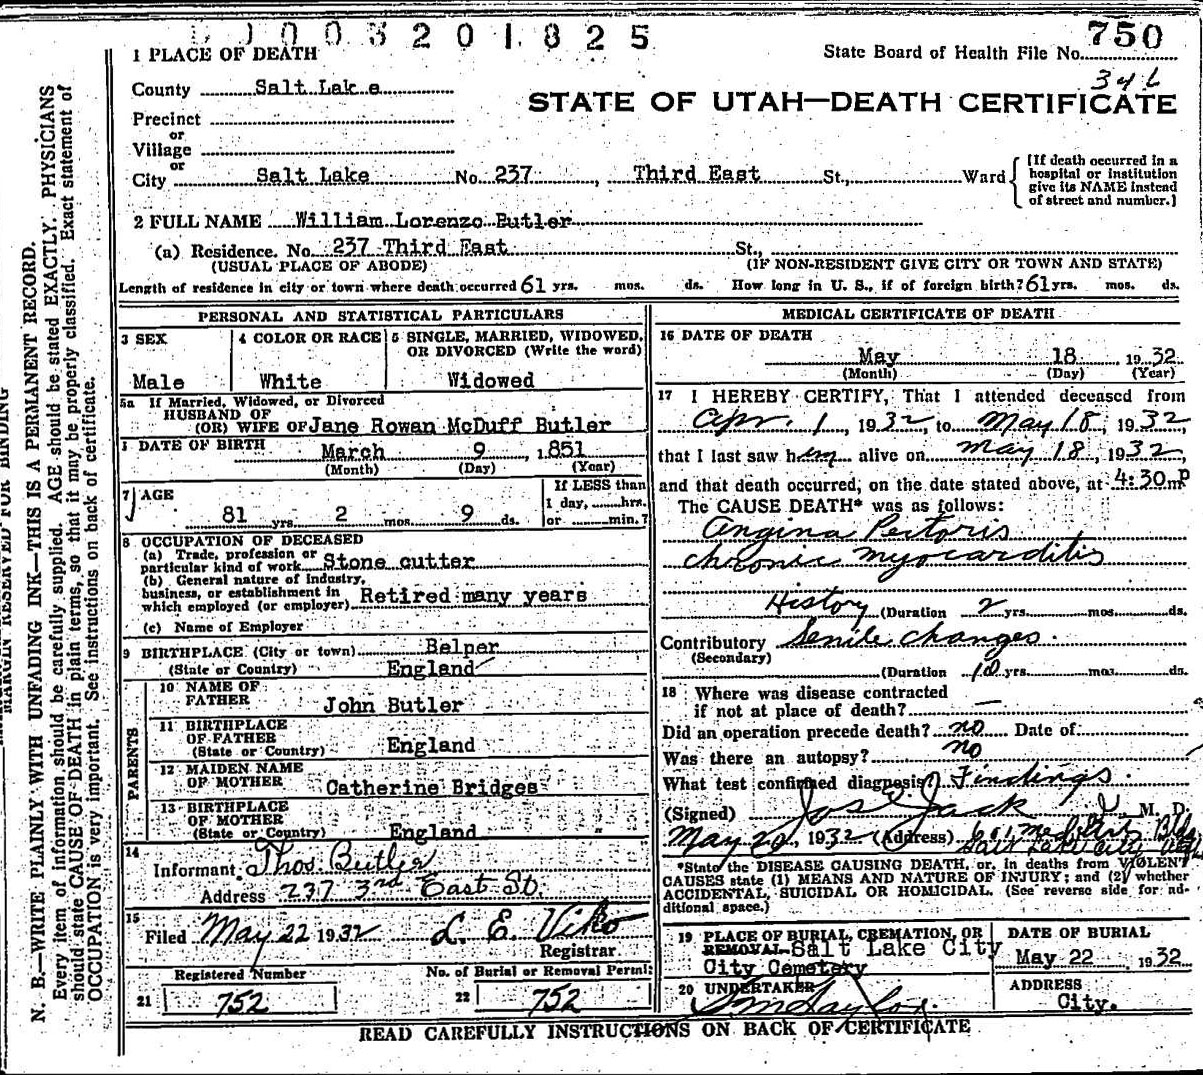 D00320 1825
1 PLACE OF DEATH
State Board of Health File No. 750
346
County Salt Lake
STATE OF UTAH—DEATH CERTIFICATE
Precinct
or
Village
or
City Salt Lake No. 237, Third East St., Ward
[If death occurred in a
hospital or institution
give its NAME instead
of street and number.]
2 FULL NAME William Lorenzo Butler
(a) Residence. No. 237 Third East St.,
(USUAL PLACE OF ABODE) (IF NON-RESIDENT GIVE CITY OR TOWN AND STATE)
Length of residence in city or town where death occurred 61 yrs. mos. ds. How long in U. S., if of foreign birth? 61 yrs. mos. ds.
PERSONAL AND STATISTICAL PARTICULARS
3 SEX
Male
4 COLOR OR RACE
White
5 SINGLE, MARRIED, WIDOWED,
OR DIVORCED (Write the word)
Widowed
5a If Married, Widowed, or Divorced
HUSBAND OF
(OR) WIFE OF Jane Rowan McDuff Butler
DATE OF BIRTH March 9, 1851
(Month) (Day) (Year)
7 AGE
81 yrs. 2 mos. 9 ds.
If LESS than
1 day, hrs.
or min.?
8 OCCUPATION OF DECEASED
(a) Trade, profession or
particular kind of work Stone cutter
(b) General nature of Industry,
business, or establishment in
which employed (or employer) Retired many years
(c) Name of Employer
9 BIRTHPLACE (City or town) Belper
(State or Country) England
PARENTS
10 NAME OF
FATHER John Butler
11 BIRTHPLACE
OF FATHER
(State or Country) England
12 MAIDEN NAME
OF MOTHER Catherine Bridges
13 BIRTHPLACE
OF MOTHER
(State or Country) England
14
Informant Thos. Butler
Address 237 3rd East St.
15
Filed May 22 1932 L. E. Viko
Registrar
Registered Number
21 752
No. of Burial or Removal Permit
22 752
MEDICAL CERTIFICATE OF DEATH
16 DATE OF DEATH
May 18 1932
(Month) (Day) (Year)
17 I HEREBY CERTIFY, That I attended deceased from
Apr. 1, 1932, to May 18, 1932,
that I last saw him alive on May 18, 1932,
and that death occurred, on the date stated above, at 4:30 m P
The CAUSE DEATH* was as follows:
Angina Pectoris
chronic myocarditis
History (Duration 2 yrs. mos. ds.
Contributory Senile changes.
(Secondary)
(Duration 10 yrs. mos. ds.
18 Where was disease contracted
if not at place of death? —
Did an operation precede death? no Date of
Was there an autopsy? no
What test confirmed diagnosis? Findings.
(Signed) Jos E Jack M. D.
May 20, 1932 (Address) 601 Med Arts Bldg
Salt Lake City Utah
*State the DISEASE CAUSING DEATH, or, in deaths from VIOLENT
CAUSES state (1) MEANS AND NATURE OF INJURY; and (2) whether
ACCIDENTAL, SUICIDAL OR HOMICIDAL. (See reverse side for ad-
ditional space.)
19 PLACE OF BURIAL, CREMATION, OR
REMOVAL Salt Lake City
City Cemetery
DATE OF BURIAL
May 22, 1932
20 UNDERTAKER
ADDRESS
City.
READ CAREFULLY INSTRUCTIONS ON BACK OF CERTIFICATE
MARGIN RESERVED FOR BINDING
N. B.—WRITE PLAINLY WITH UNFADING INK—THIS IS A PERMANENT RECORD.
Every item of information should be carefully supplied. AGE should be stated EXACTLY. PHYSICIANS
should state CAUSE OF DEATH in plain terms, so that it may be properly classified. Exact statement of
OCCUPATION is very important. See instructions on back of certificate.